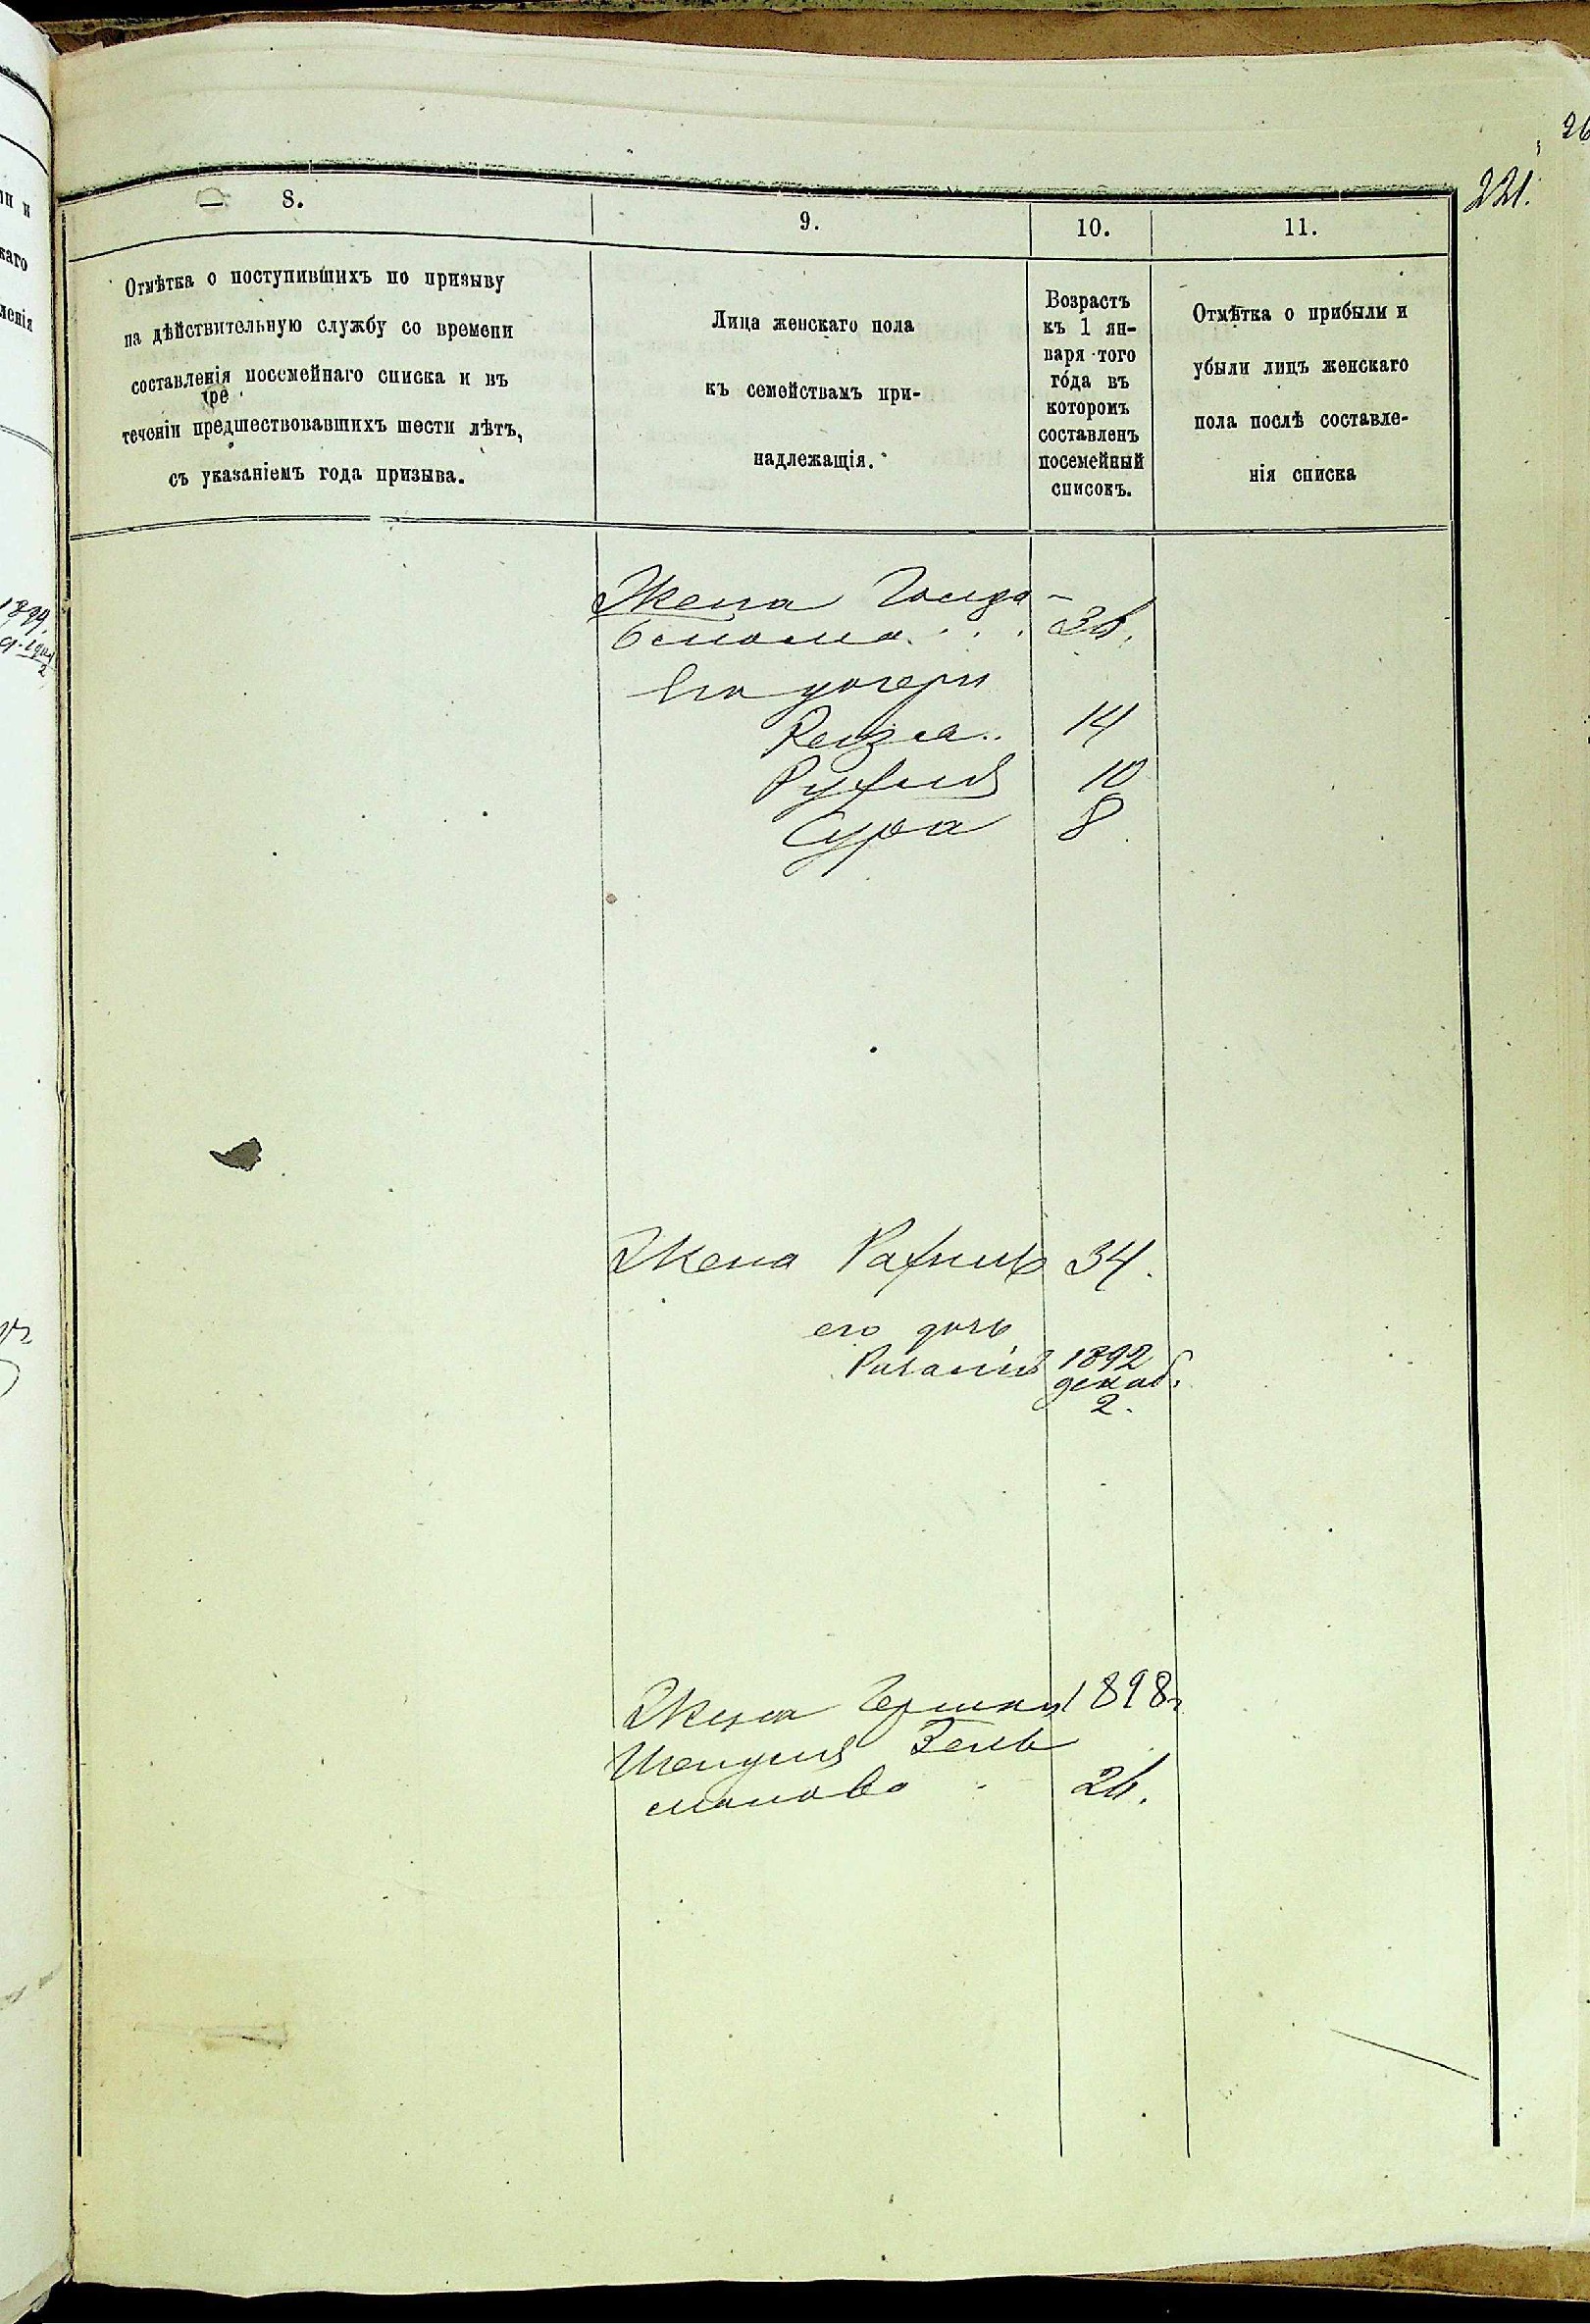 221.
8.
9.
10.
11.
Отмѣтка о поступившихъ по призыву
на дѣйствительную службу со времени
составленія посемейнаго списка и въ
теченіи предшествовавшихъ шести лѣтъ,
съ указаніемъ года призыва.
Лица женскаго пола
къ семействамъ при-
надлежащія.
Возрастъ
къ 1 ян-
варя того
года въ
которомъ
составленъ
посемейный
списокъ.
Отмѣтка о прибыли и
убыли лицъ женскаго
пола послѣ составле-
нія списка
Жена
36.
Его дочери
Рейза 14
Рухля 10
Сура 8
Жена Рахиль 34.
его дочь
1892
декаб.
2.
Жена Гершки 1898г
Шендля Зель
манова 26.